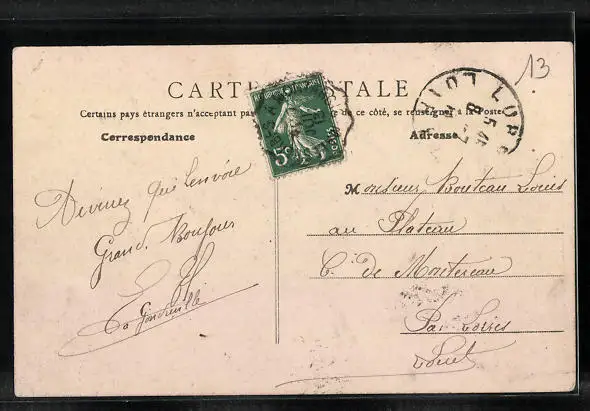 13
CARTE POSTALE
Certains pays étrangers n'acceptant pas de ce côté, se renseigner à la Poste
Correspondance
Adresse
5c
Devinez qui t'envoie
Grand Bonjour
Monsieur Bouteau Louis
au Plateau
C. de Montereau
Par Lorris
Loiret